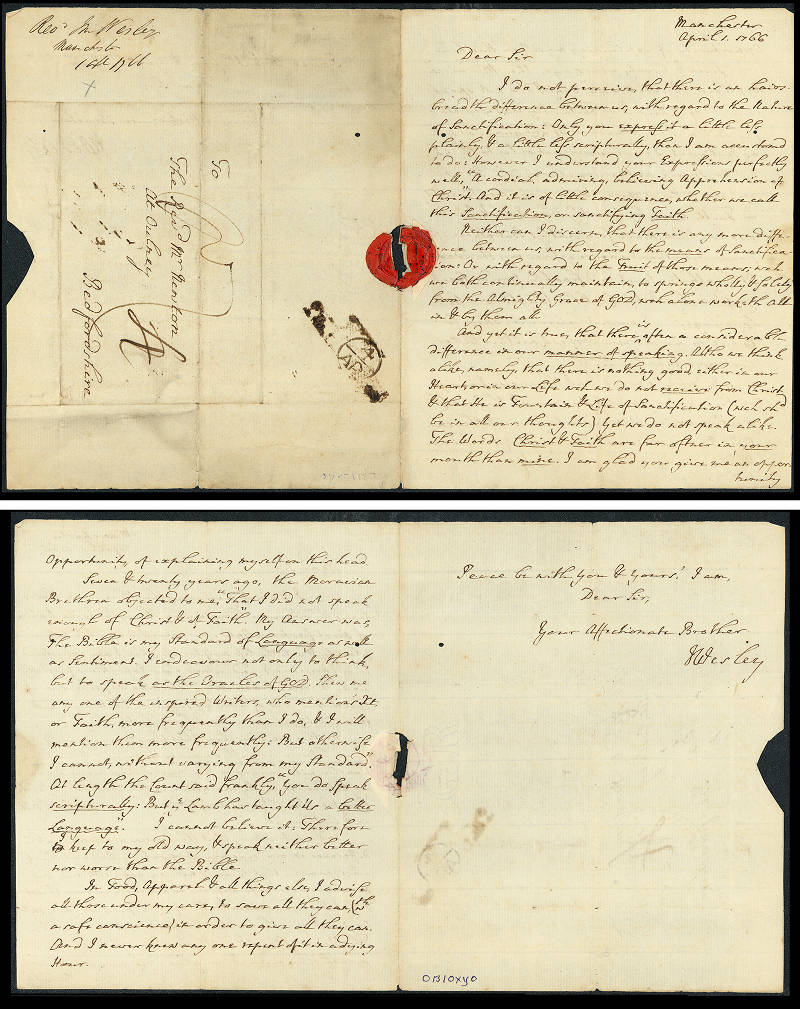 Revd Jn Wesley
Manchester
1 Apl 1766
To
The Revd Mr Newton
At Oulney
Bedfordshire
4
AP
Manchester
April 1. 1766
Dear Sir
I do not perceive, that there is an hairs-
breadth difference between us, with regard to the Nature
of Sanctification: Only you express it a little less
plainly & a little less scripturally, than I am accustomed
to do: However I understand your Expressions perfectly
well, "A cordial, admiring, believing Apprehension of
Christ." And it is of little consequence, whether we call
this Sanctification, or sanctifying Faith.
Neither can I discern, that there is any more differ-
ence between us, with regard to the means of Sanctifica-
tion: Or with regard to the Fruit of those means; wch
we both continually maintain, to springs wholly & solely
from the Almighty Grace of GOD, wch alone worketh All
in & by them all.
And yet it is true, that there is often a considerable
difference in our manner of speaking. Altho we think
alike, namely, that there is nothing good, either in our
Heart or in our Life wch we do not receive from Christ
& that He is Fountain & Life of Sanctification (wch shd
be in all our thoughts) Yet we do not speak alike.
The Words Christ & Faith are far oftner in your
mouth than mine. I am glad you give me an oppor-
tunity
Opportunity, of explaining myself on this head.
Seven & twenty years ago, the Moravian
Brethren objected to me, "That I did not speak
enough of Christ & of Faith". My Answer was,
"The Bible is my Standard of Language as well
as Sentiment. I endeavour not only to think,
but to speak as the Oracles of GOD. Shew me
any one of the inspired Writers, who mentions Xt
or Faith, more frequently than I do, & I will
mention them more frequently: But otherwise
I cannot, without varying from my Standard".
At length the Count said frankly, "You do speak
scripturally: But ye Lamb has taught Us a better
Language". I cannot believe it: Therefore
I keep to my old way, & speak neither better
nor worse than the Bible.
In Food, Apparel & all things else, I advise
all those under my care, to save all they can, (wth
a safe conscience) in order to give all they can.
And I never knew any one repent of it in a dying
Hour.
Peace be with you & yours! I am,
Dear Sir,
Your Affectionate Brother
JWesley
OB10xy0